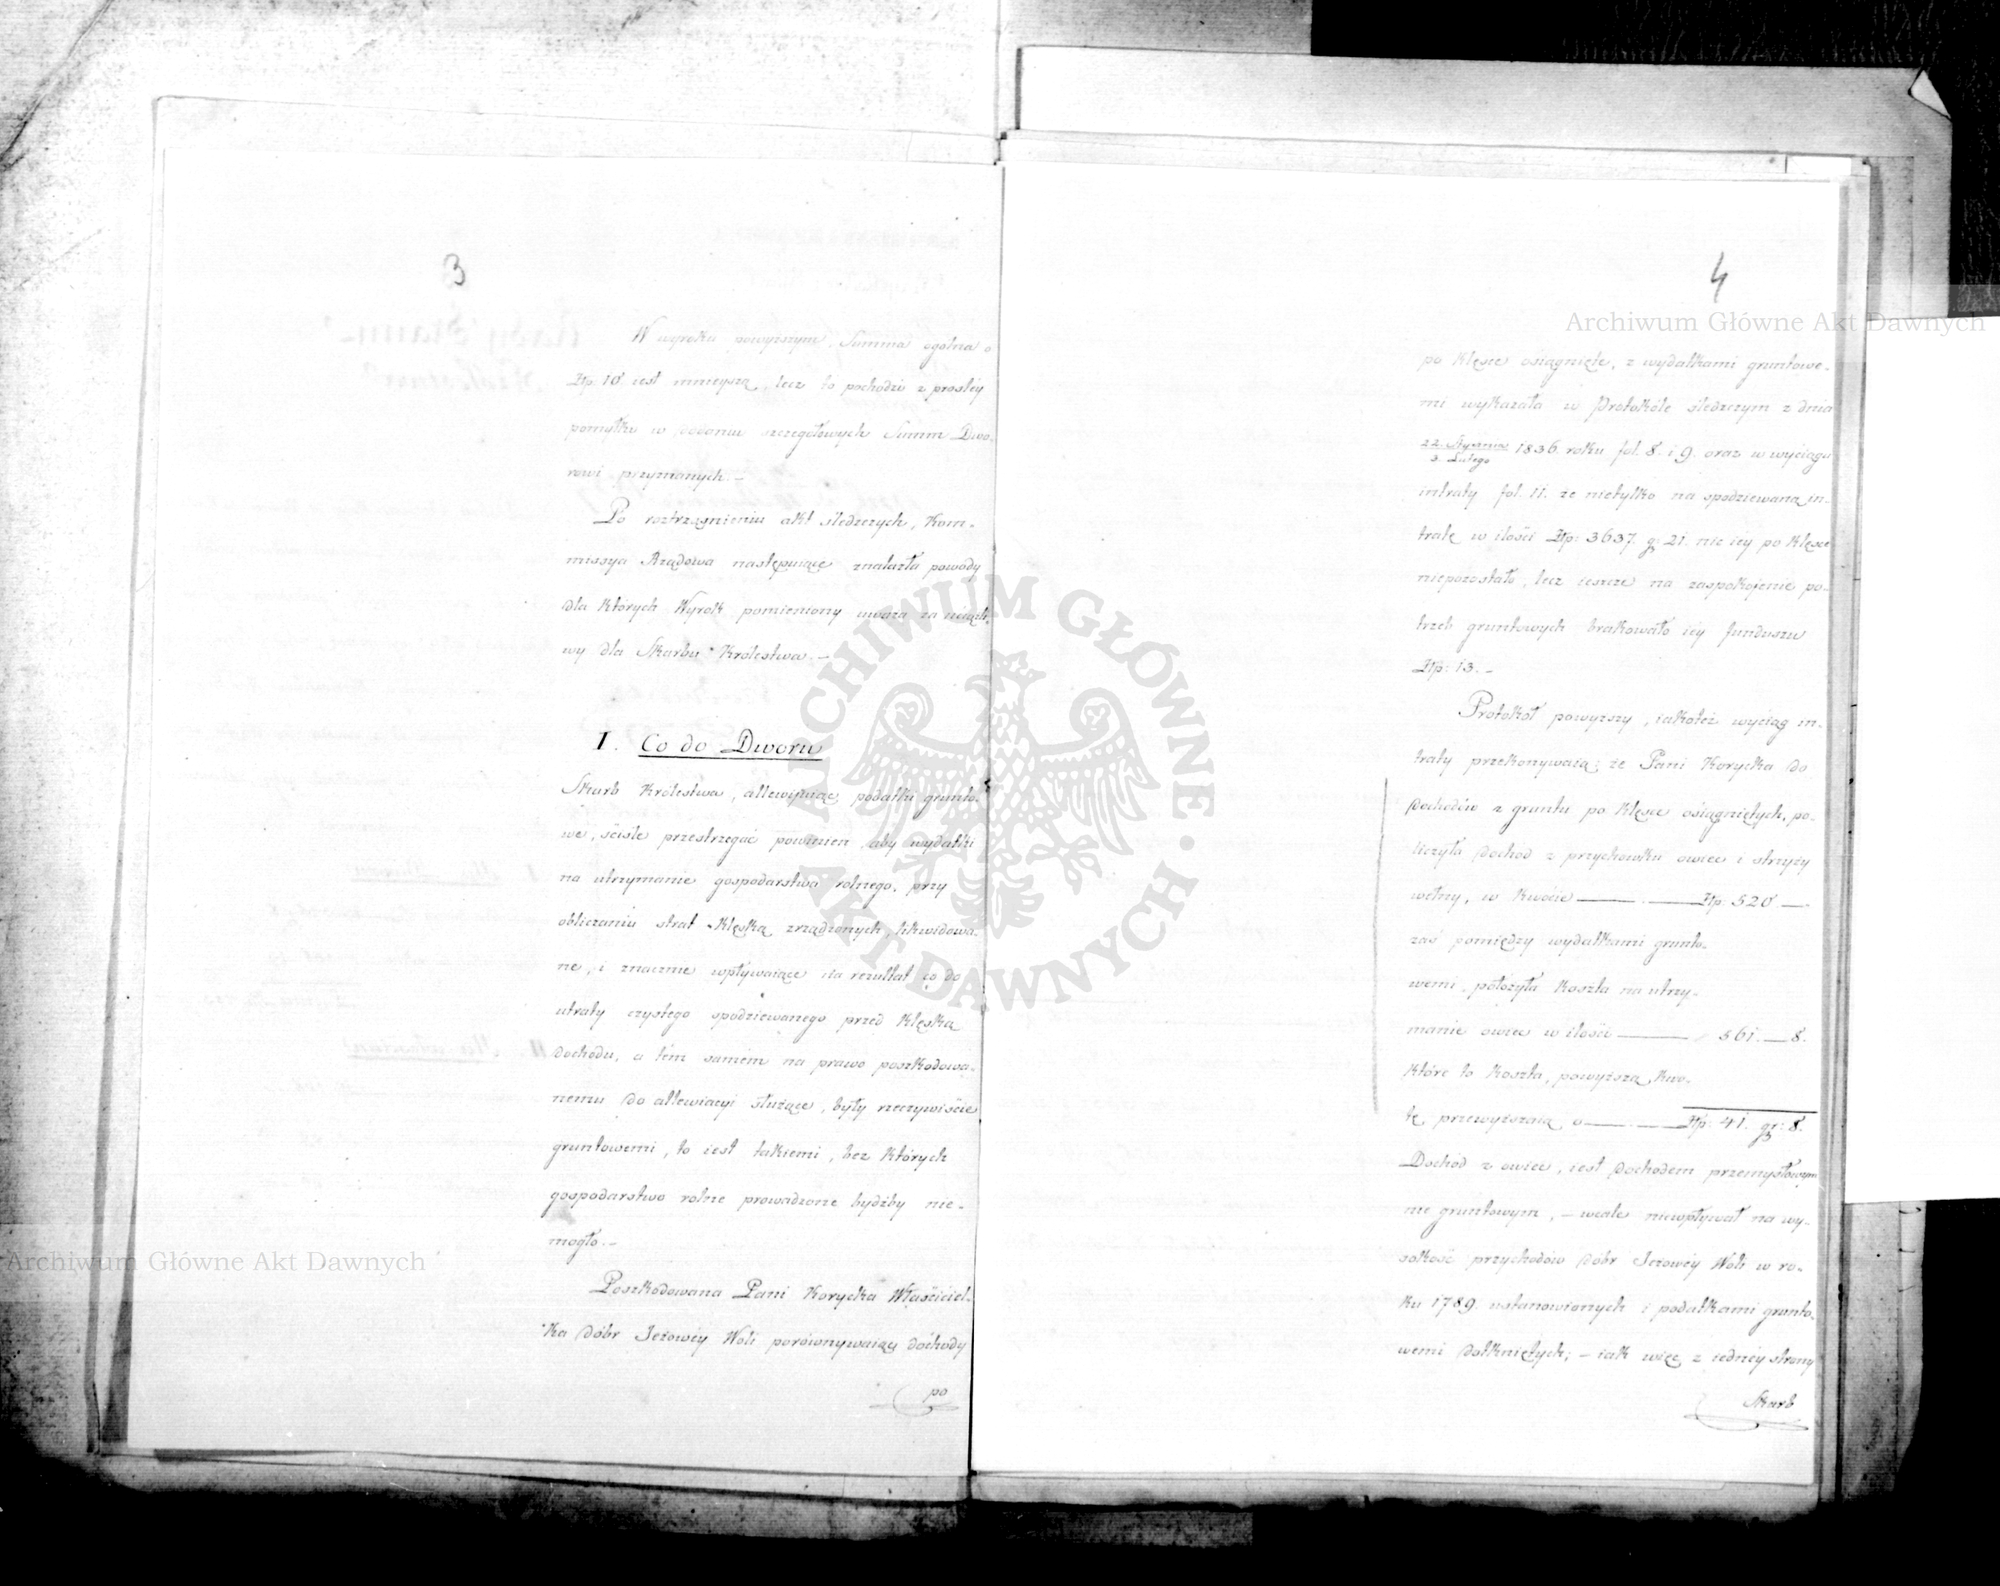 3
W wyroku powyższym, Summa ogólna o
Złp: 10. iest mnieysza, lecz to pochodzi z prostéy
pomyłki w podaniu szczegółowych Summ Dwo-
rowi przyznanych. –
Po roztrząśnieniu akt śledczych, Kom-
missya Rządowa następuiące znalazła powody
dla których Wyrok pomieniony uważa za uciążli-
wy dla Skarbu Królestwa. –
I. Co do Dworu
Skarb Królestwa, allewiuiąc podatki grunto-
we, ściśle przestrzegać powinien, aby wydatki
na utrzymanie gospodarstwa rolnego, przy
obliczaniu strat klęską zrządzonych, likwidowa-
ne, i znacznie wpływaiące na rezultat co do
utraty czystego spodziewanego przed klęską
dochodu, a tém samém na prawo poszkodowa-
nemu do allewiacyi służące, były rzeczywiście
gruntowemi, to iest takiemi, bez których
gospodarstwo rolne prowadzone bydźby nie-
mogło. –
Poszkodowana Pani Korycka Właściciel-
ka dóbr Jeżowéy Woli porównywaiąc dochody
po
4
po klęsce osiągnięte, z wydatkami gruntowe-
mi wykazała w Protokóle śledczym z dnia
22. Stycznia
3. Lutego
1836. roku fol. 8. i 9. oraz w wyciągu
intraty fol. 11. że nietylko na spodziewaną in-
tratę w ilości Złp: 3637. g: 21. nic iéy po klęsce
niepozostało, lecz ieszcze na zaspokojenie po-
trzeb gruntowych brakowało iéy funduszu
Złp: 13. –
Protokół powyższy, iakotéż wyciąg in-
traty przekonywaią; że Pani Korycka do
dochodów z gruntu po klęsce osiągniętych, po-
liczyła dochod z przychowku owiec i strzyży
wełny, w kwocie — Złp: 520 —
zaś pomiędzy wydatkami grunto-
wemi, położyła koszta na utrzy-
manie owiec w ilości — 561. — 8.
które to koszta, powyższą kwo-
tę przewyższaią o — Złp: 41. gr: 8.
Dochód z owiec, iest dochodem przemysłowym
nie gruntowym, – wcale niewpływał na wy-
sokość przychodów dóbr Jeżowéy Woli w ro-
ku 1789. ustanowionych i podatkami grunto-
wemi dotkniętych; – iak więc z iednéy strony
Skarb
Archiwum Główne Akt Dawnych
Archiwum Główne Akt Dawnych
ARCHIWUM GŁÓWNE AKT DAWNYCH